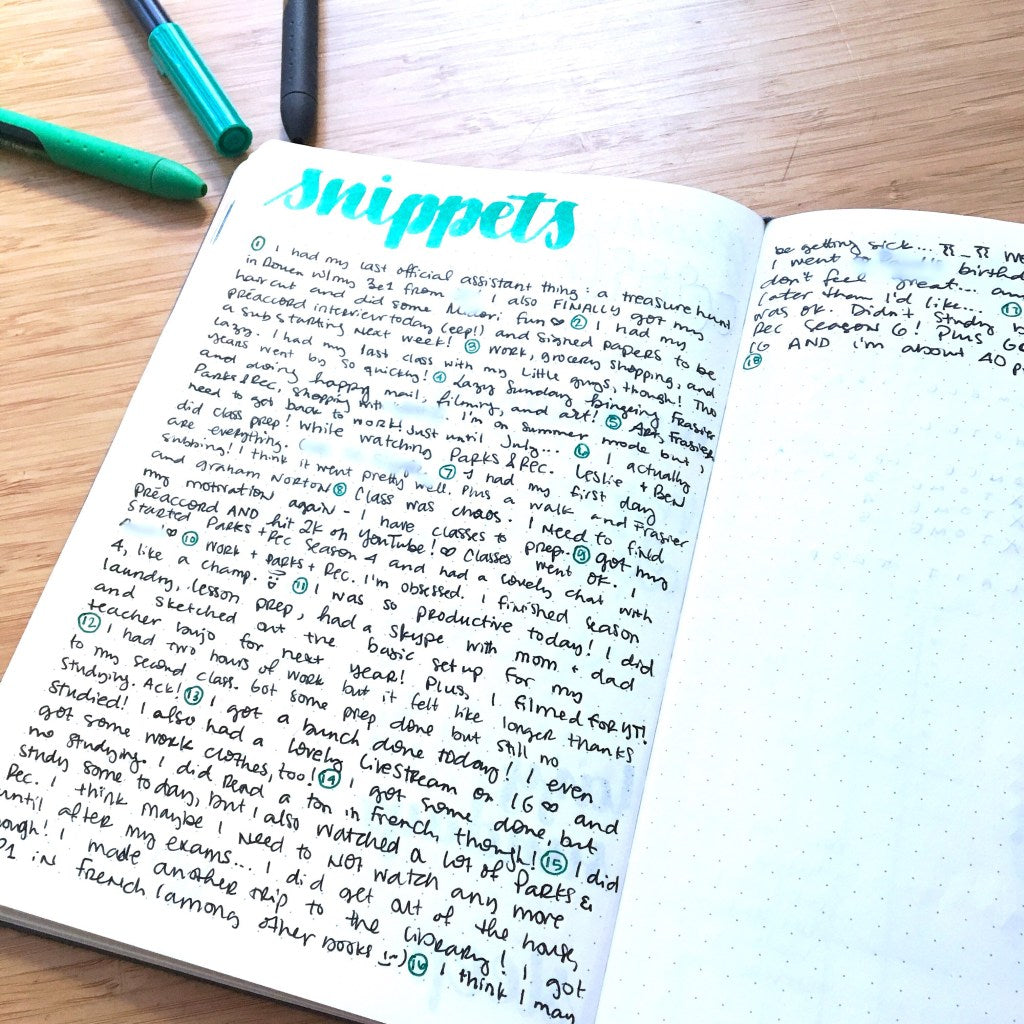 snippets
① I had my last official assistant thing: a treasure hunt
in Rouen w/my 3e1 from . I also FINALLY got my
haircut and did some Midori fun ♡ ② I had my
préaccord interview today (eep!) and signed papers to be
a sub starting next week! ③ Work, grocery shopping, and
lazy. I had my last class with my little guys, though! Two
years went by so quickly! ④ Lazy Sunday bingeing Frasier
and doing happy mail, filming, and art! ⑤ Art, Frasier,
Parks & Rec, shopping with I'm on summer mode but I
need to get back to work! Just until July... ⑥ I actually
did class prep! While watching Parks & Rec. Leslie + Ben
are everything. ( ⑦ I had my first day
subbing! I think it went pretty well. Plus a walk and Frasier
and Graham Norton ⑧ Class was chaos. I need to find
my motivation again - I have classes to prep. ⑨ Got my
préaccord AND hit 2K on YouTube! ♡ Classes went ok. I
started Parks + Rec Season 4 and had a lovely chat with
♡ ⑩ Work + Parks + Rec. I'm obsessed. I finished season
4, like a champ. ⑪ I was so productive today! I did
laundry, lesson prep, had a skype with mom + dad
and sketched out the basic setup for my
teacher bujo for next year! Plus, I filmed for YT!
⑫ I had two hours of work but it felt like longer thanks
to my second class. Got some prep done but still no
studying. Ack! ⑬ I got a bunch done today! I even
studied! I also had a lovely livestream on IG ♡ and
got some work clothes, too! ⑭ I got some done, but
no studying. I did read a ton in French, though! ⑮ I did
study some today, but I also watched a lot of Parks &
Rec. I think maybe I need to NOT watch any more
until after my exams... I did get out of the house,
though! I made another trip to the library! I got
in French (among other books :-) ⑯ I think I may
be getting sick...
I went to birthd
don't feel great... an
later than I'd like... ⑰
was ok. Didn't study b
Rec Season 6! Plus
IG AND I'm about 40 p
⑱